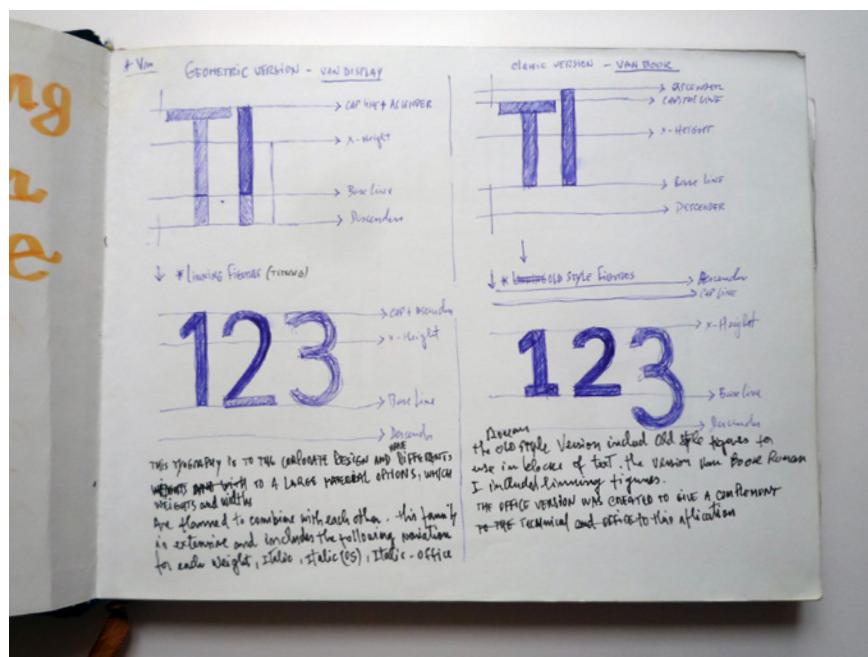 ng
n
e
* Van
GEOMETRIC VERSION - VAN DISPLAY
TI
CAP line + ASCENDER
x-Height
Base line
Descenders
* LINNING FIGURES (TITLING)
123
CAP + ASCENDER
x-Height
Base Line
Descender
THIS TYPOGRAPHY IS TO THE CORPORATE DESIGN AND HAVE DIFFERENTS
WEIGHTS AND WITH TO A LARGE MATERIAL OPTIONS, WHICH
WEIGHTS and widths
Are planned to combine with each other. this family
is extensive and includes the following variation
for each weight, Italic, Italic (OS), Italic-office
CLASSIC VERSION - VAN BOOK
TI
ASCENDER
CAPITAL LINE
x-HEIGHT
Base LINE
DESCENDER
* LINNING OLD STYLE FIGURES
Ascender
CAP LINE
123
x-Height
Base line
Descender
Roman
the OLD STYLE Version includ Old style figures for
use in blocks of text. the version Van Book Roman
I included linning figures.
THE OFFICE VERSION WAS CREATED TO GIVE A COMPLEMENT
TO THE TECHNICAL and OFFICE to this aplication